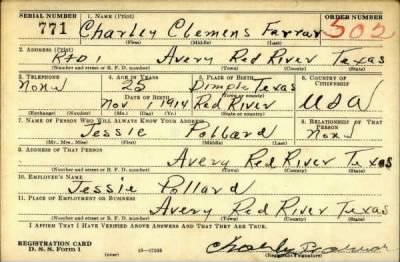 SERIAL NUMBER 1. NAME (Print) ORDER NUMBER
771 Charley Clemens Farrar 502
(First) (Middle) (Last)
2. ADDRESS (Print)
RFD Avery Red River Texas
(Number and street or R. F. D. number) (Town) (County) (State)
3. TELEPHONE 4. AGE IN YEARS 5. PLACE OF BIRTH 6. COUNTRY OF CITIZENSHIP
None 25 Dimple Texas
DATE OF BIRTH (Town or county)
Nov 1 1914 Red River USA
(Exchange) (Number) (Mo.) (Day) (Yr.) (State or country)
7. NAME OF PERSON WHO WILL ALWAYS KNOW YOUR ADDRESS 8. RELATIONSHIP OF THAT PERSON
Jessie Pollard None
(Mr., Mrs., Miss) (First) (Middle) (Last)
9. ADDRESS OF THAT PERSON
Avery Red River Texas
(Number and street or R. F. D. number) (Town) (County) (State)
10. EMPLOYER'S NAME
Jessie Pollard
11. PLACE OF EMPLOYMENT OR BUSINESS
Avery Red River Texas
(Number and street or R. F. D. number) (Town) (County) (State)
I AFFIRM THAT I HAVE VERIFIED ABOVE ANSWERS AND THAT THEY ARE TRUE.
REGISTRATION CARD
D. S. S. Form 1 (over) Charley
(Registrant's signature)